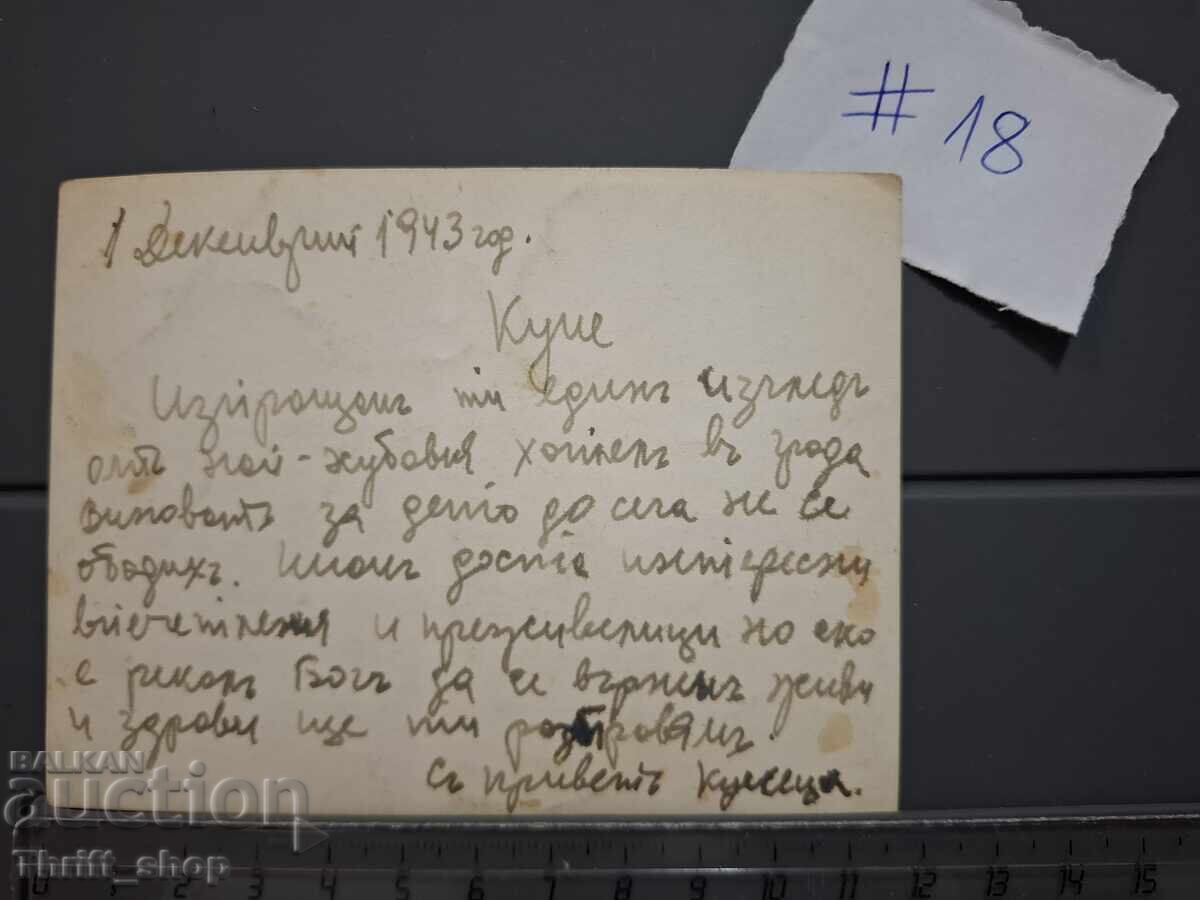 # 18
1 Декемврий 1943 год.
Куне
Изпращамъ ти единъ изгледъ
отъ най-хубавия хотелъ въ града
виноватъ за дето до сега не се
обадихъ. Имамъ доста интересни
впечетления и преживелици но ако
е рекалъ Богъ да се върнемъ живи
и здрави ще ти разправямъ.
Съ приветъ
BALKAN
auction
Thrift_shop
0 1 2 3 4 5 6 7 8 9 10 11 12 13 14 15